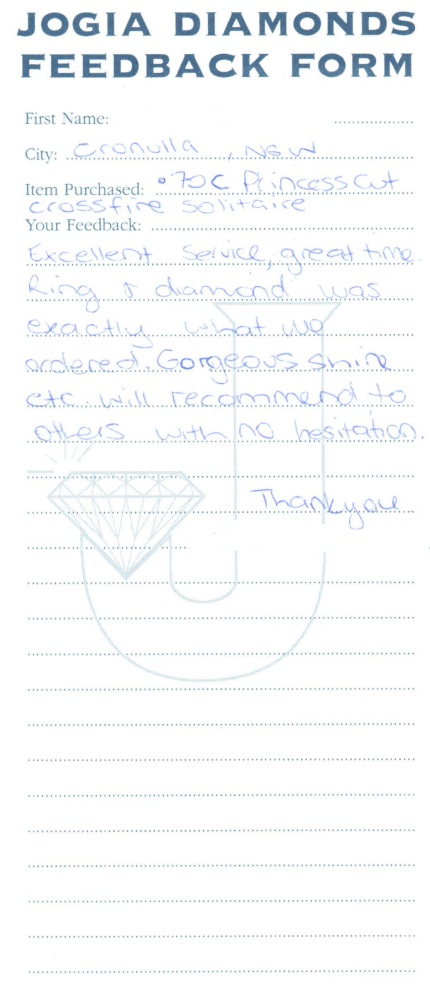 JOGIA DIAMONDS
FEEDBACK FORM
First Name:
City: Cronulla, NSW
Item Purchased: .70c Princess Cut
crossfire solitaire
Your Feedback:
Excellent Service, great time.
Ring & diamond was
exactly what we
ordered. Gorgeous shine
etc. will recommend to
others with no hesitation.
Thankyou